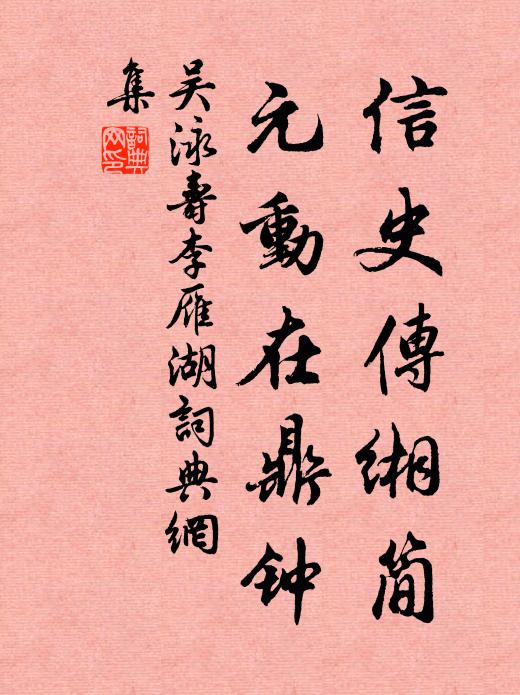 信史傳缃简
元動在鼎钟
吴泳壽李雁湖詞典網
集
詞典網印